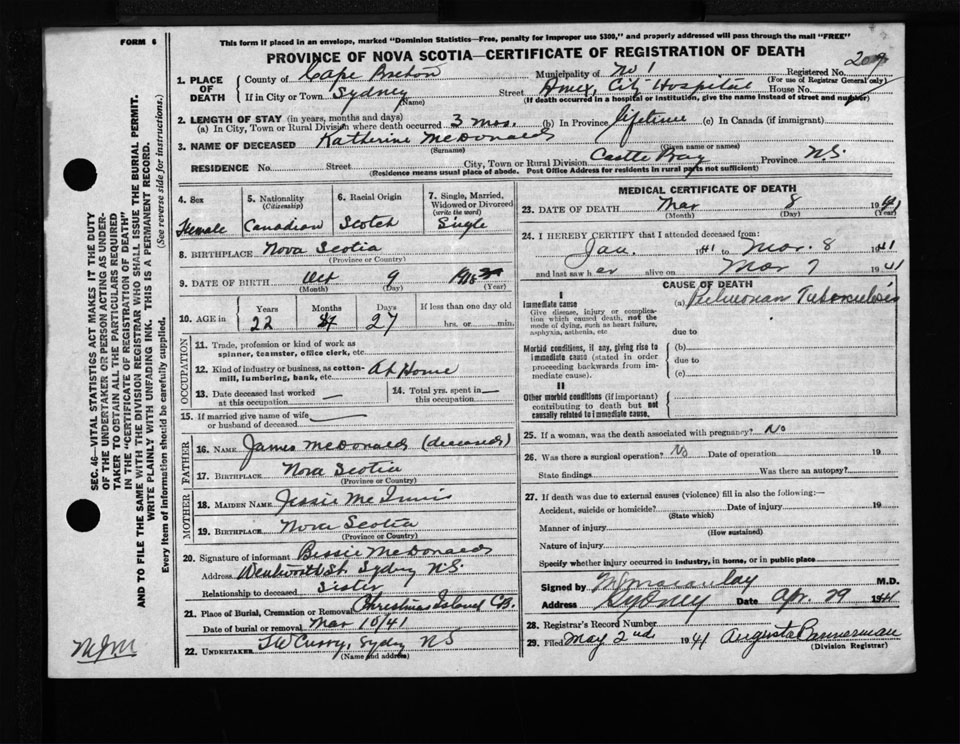 FORM 6
This form if placed in an envelope, marked "Dominion Statistics—Free, penalty for improper use $300," and properly addressed will pass through the mail "FREE"
PROVINCE OF NOVA SCOTIA—CERTIFICATE OF REGISTRATION OF DEATH
1. PLACE OF DEATH
County of Cape Breton Municipality of No 1 Registered No. 209
(For use of Registrar General only)
If in City or Town Sydney Street Amex, City Hospital House No.
(Name) (If death occurred in a hospital or institution, give the name instead of street and number)
2. LENGTH OF STAY (in years, months and days)
(a) In City, Town or Rural Division where death occurred 3 mos. (b) In Province lifetime (c) In Canada (if immigrant)
3. NAME OF DECEASED Katherine McDonald
(Surname) (Given name or names)
RESIDENCE No. Street City, Town or Rural Division Castle Bay Province N.S.
(Residence means usual place of abode. Post Office Address for residents in rural parts not sufficient)
4. Sex Female
5. Nationality (Citizenship) Canadian
6. Racial Origin Scotch
7. Single, Married, Widowed or Divorced (write the word) Single
8. BIRTHPLACE Nova Scotia
(Province or Country)
9. DATE OF BIRTH Oct 9
(Month) (Day) (Year)
10. AGE in Years Months Days If less than one day old
22 27 hrs. or min.
OCCUPATION
11. Trade, profession or kind of work as spinner, teamster, office clerk, etc.
12. Kind of industry or business, as cotton-mill, lumbering, bank, etc. At Home
13. Date deceased last worked at this occupation —
14. Total yrs. spent in this occupation —
15. If married give name of wife or husband of deceased —
FATHER
16. NAME James McDonald (deceased)
17. BIRTHPLACE Nova Scotia
(Province or Country)
MOTHER
18. MAIDEN NAME Jessie McInnis
19. BIRTHPLACE Nova Scotia
(Province or Country)
20. Signature of informant Bessie McDonald
Address Wentworth St. Sydney N.S.
Relationship to deceased Sister
21. Place of Burial, Cremation or Removal Christmas Island C.B.
Date of burial or removal Mar 10/41
22. UNDERTAKER T W Curry, Sydney NS
(Name and Address)
MEDICAL CERTIFICATE OF DEATH
23. DATE OF DEATH Mar 8 1941
(Month) (Day) (Year)
24. I HEREBY CERTIFY that I attended deceased from:
Jan. 1941 to Mar. 8 1941
and last saw her alive on Mar 7 1941
CAUSE OF DEATH
I
Immediate cause (a) Pulmonary Tuberculosis
Give disease, injury or complication which caused death, not the mode of dying, such as heart failure, asphyxia, asthenia, etc
due to
Morbid conditions, if any, giving rise to immediate cause (stated in order proceeding backwards from immediate cause).
(b)
due to
(c)
II
Other morbid conditions (if important) contributing to death but not causally related to immediate cause.
25. If a woman, was the death associated with pregnancy? No
26. Was there a surgical operation? No Date of operation 19
State findings Was there an autopsy?
27. If death was due to external causes (violence) fill in also the following:—
Accident, suicide or homicide? Date of injury 19
(State which)
Manner of injury
(How sustained)
Nature of injury
Specify whether injury occurred in industry, in home, or in public place
Signed by Macaulay M.D.
Address Sydney Date Apr. 29 1941
28. Registrar's Record Number
29. Filed May 2nd 1941 Augusta Bannerman
(Division Registrar)
SEC. 46—VITAL STATISTICS ACT MAKES IT THE DUTY
OF THE UNDERTAKER OR PERSON ACTING AS UNDER-
TAKER TO OBTAIN ALL THE PARTICULARS REQUIRED
IN THE "CERTIFICATE OF REGISTRATION OF DEATH"
AND TO FILE THE SAME WITH THE DIVISION REGISTRAR WHO SHALL ISSUE THE BURIAL PERMIT.
WRITE PLAINLY WITH UNFADING INK. THIS IS A PERMANENT RECORD.
Every item of information should be carefully supplied. (See reverse side for instructions.)